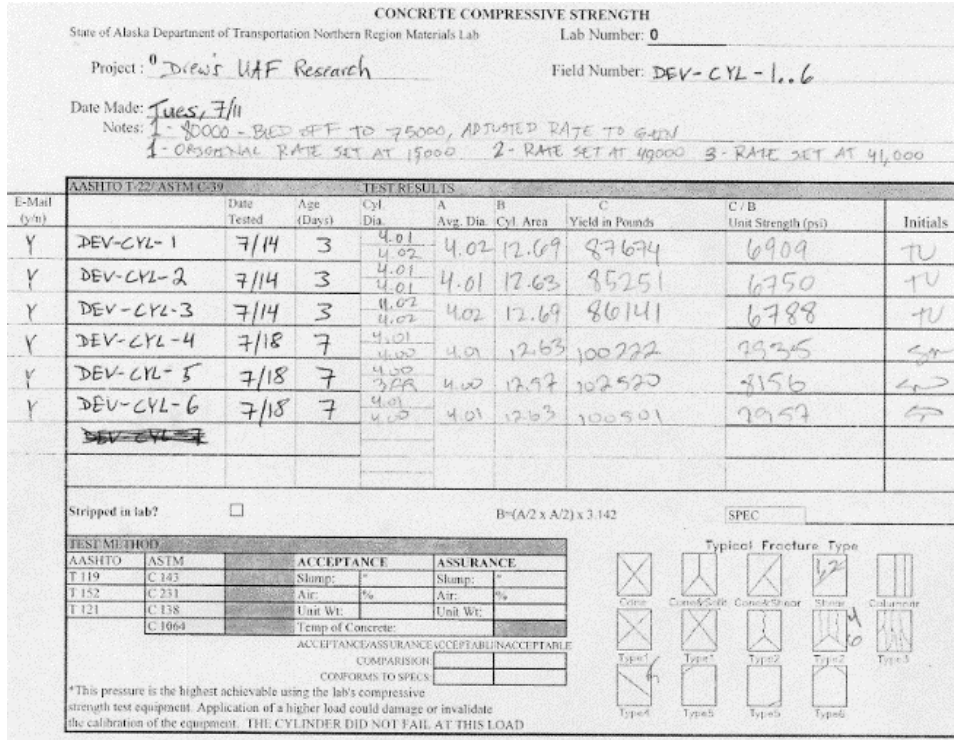 CONCRETE COMPRESSIVE STRENGTH
State of Alaska Department of Transportation Northern Region Materials Lab Lab Number: 0
Project: 0 Drew's UAF Research Field Number: DEV-CYL-1..6
Date Made: Tues, 7/11
Notes: 1 - 80000 - BLED OFF TO 75000, ADJUSTED RATE TO GAIN
1 - ORIGINAL RATE SET AT 15000 2 - RATE SET AT 40000 3 - RATE SET AT 41,000
AASHTO T-22/ ASTM C-39 TEST RESULTS
E-Mail (y/n) Date Tested Age (Days) Cyl. Dia. A Avg. Dia. B Cyl. Area C Yield in Pounds C / B Unit Strength (psi) Initials
Y DEV-CYL-1 7/14 3 4.01 4.02 4.02 12.69 87674 6909 TU
Y DEV-CYL-2 7/14 3 4.01 4.01 4.01 12.63 85251 6750 TU
Y DEV-CYL-3 7/14 3 4.02 4.02 4.02 12.69 86141 6788 TU
Y DEV-CYL-4 7/18 7 4.01 4.00 4.01 12.63 100222 7935
Y DEV-CYL-5 7/18 7 4.00 4.00 12.57 102520 8156
Y DEV-CYL-6 7/18 7 4.01 4.00 4.01 12.63 100501 7957
DEV-CYL-7
Stripped in lab? B=(A/2 x A/2) x 3.142 SPEC
TEST METHOD
AASHTO ASTM ACCEPTANCE ASSURANCE
T 119 C 143 Slump: " Slump: "
T 152 C 231 Air: % Air: %
T 121 C 138 Unit Wt: Unit Wt:
C 1064 Temp of Concrete:
ACCEPTANCE/ASSURANCE ACCEPTABLE UNACCEPTABLE
COMPARISION:
CONFORMS TO SPECS:
*This pressure is the highest achievable using the lab's compressive
strength test equipment. Application of a higher load could damage or invalidate
the calibration of the equipment. THE CYLINDER DID NOT FAIL AT THIS LOAD
Typical Fracture Type
1,2
Cone Cone&Split Cone&Shear Shear Columnar
4
6
Type1 Type1 Type2 Type2 Type3
Type4 Type5 Type5 Type6